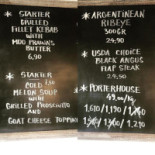 STARTER
GRILLED
FILLET KEBAB
WITH
MOO PRAWNS
BUTTER
6,90
STARTER
COLD
MELON SOUP
WITH
GRILLED PROSCIUTTO
AND
GOAT CHEESE TOPPING
ARGENTINEAN
RIBEYE
300GR
24,90
USDA CHOICE
BLACK ANGUS
FLAP STEAK
24,90
PORTERHOUSE